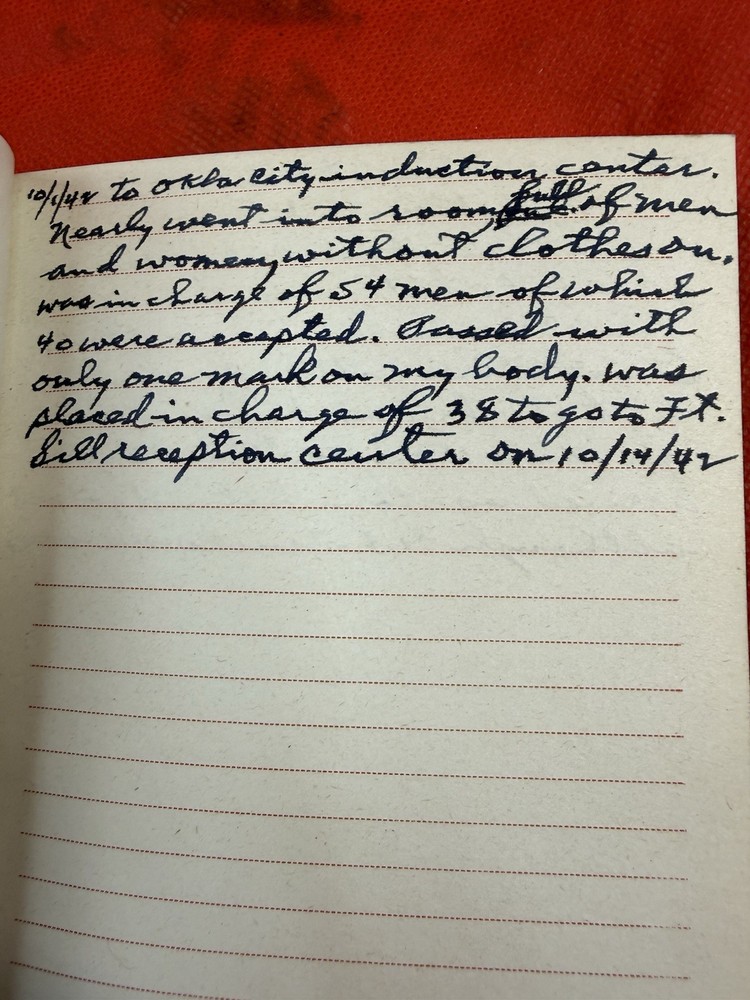 10/1/42 to Okla City induction center.
Nearly went into room full of men
and women, without clothes on.
was in charge of 54 men of which
40 were accepted. Passed with
only one mark on my body. was
placed in charge of 38 to go to Ft.
Sill reception center on 10/14/42